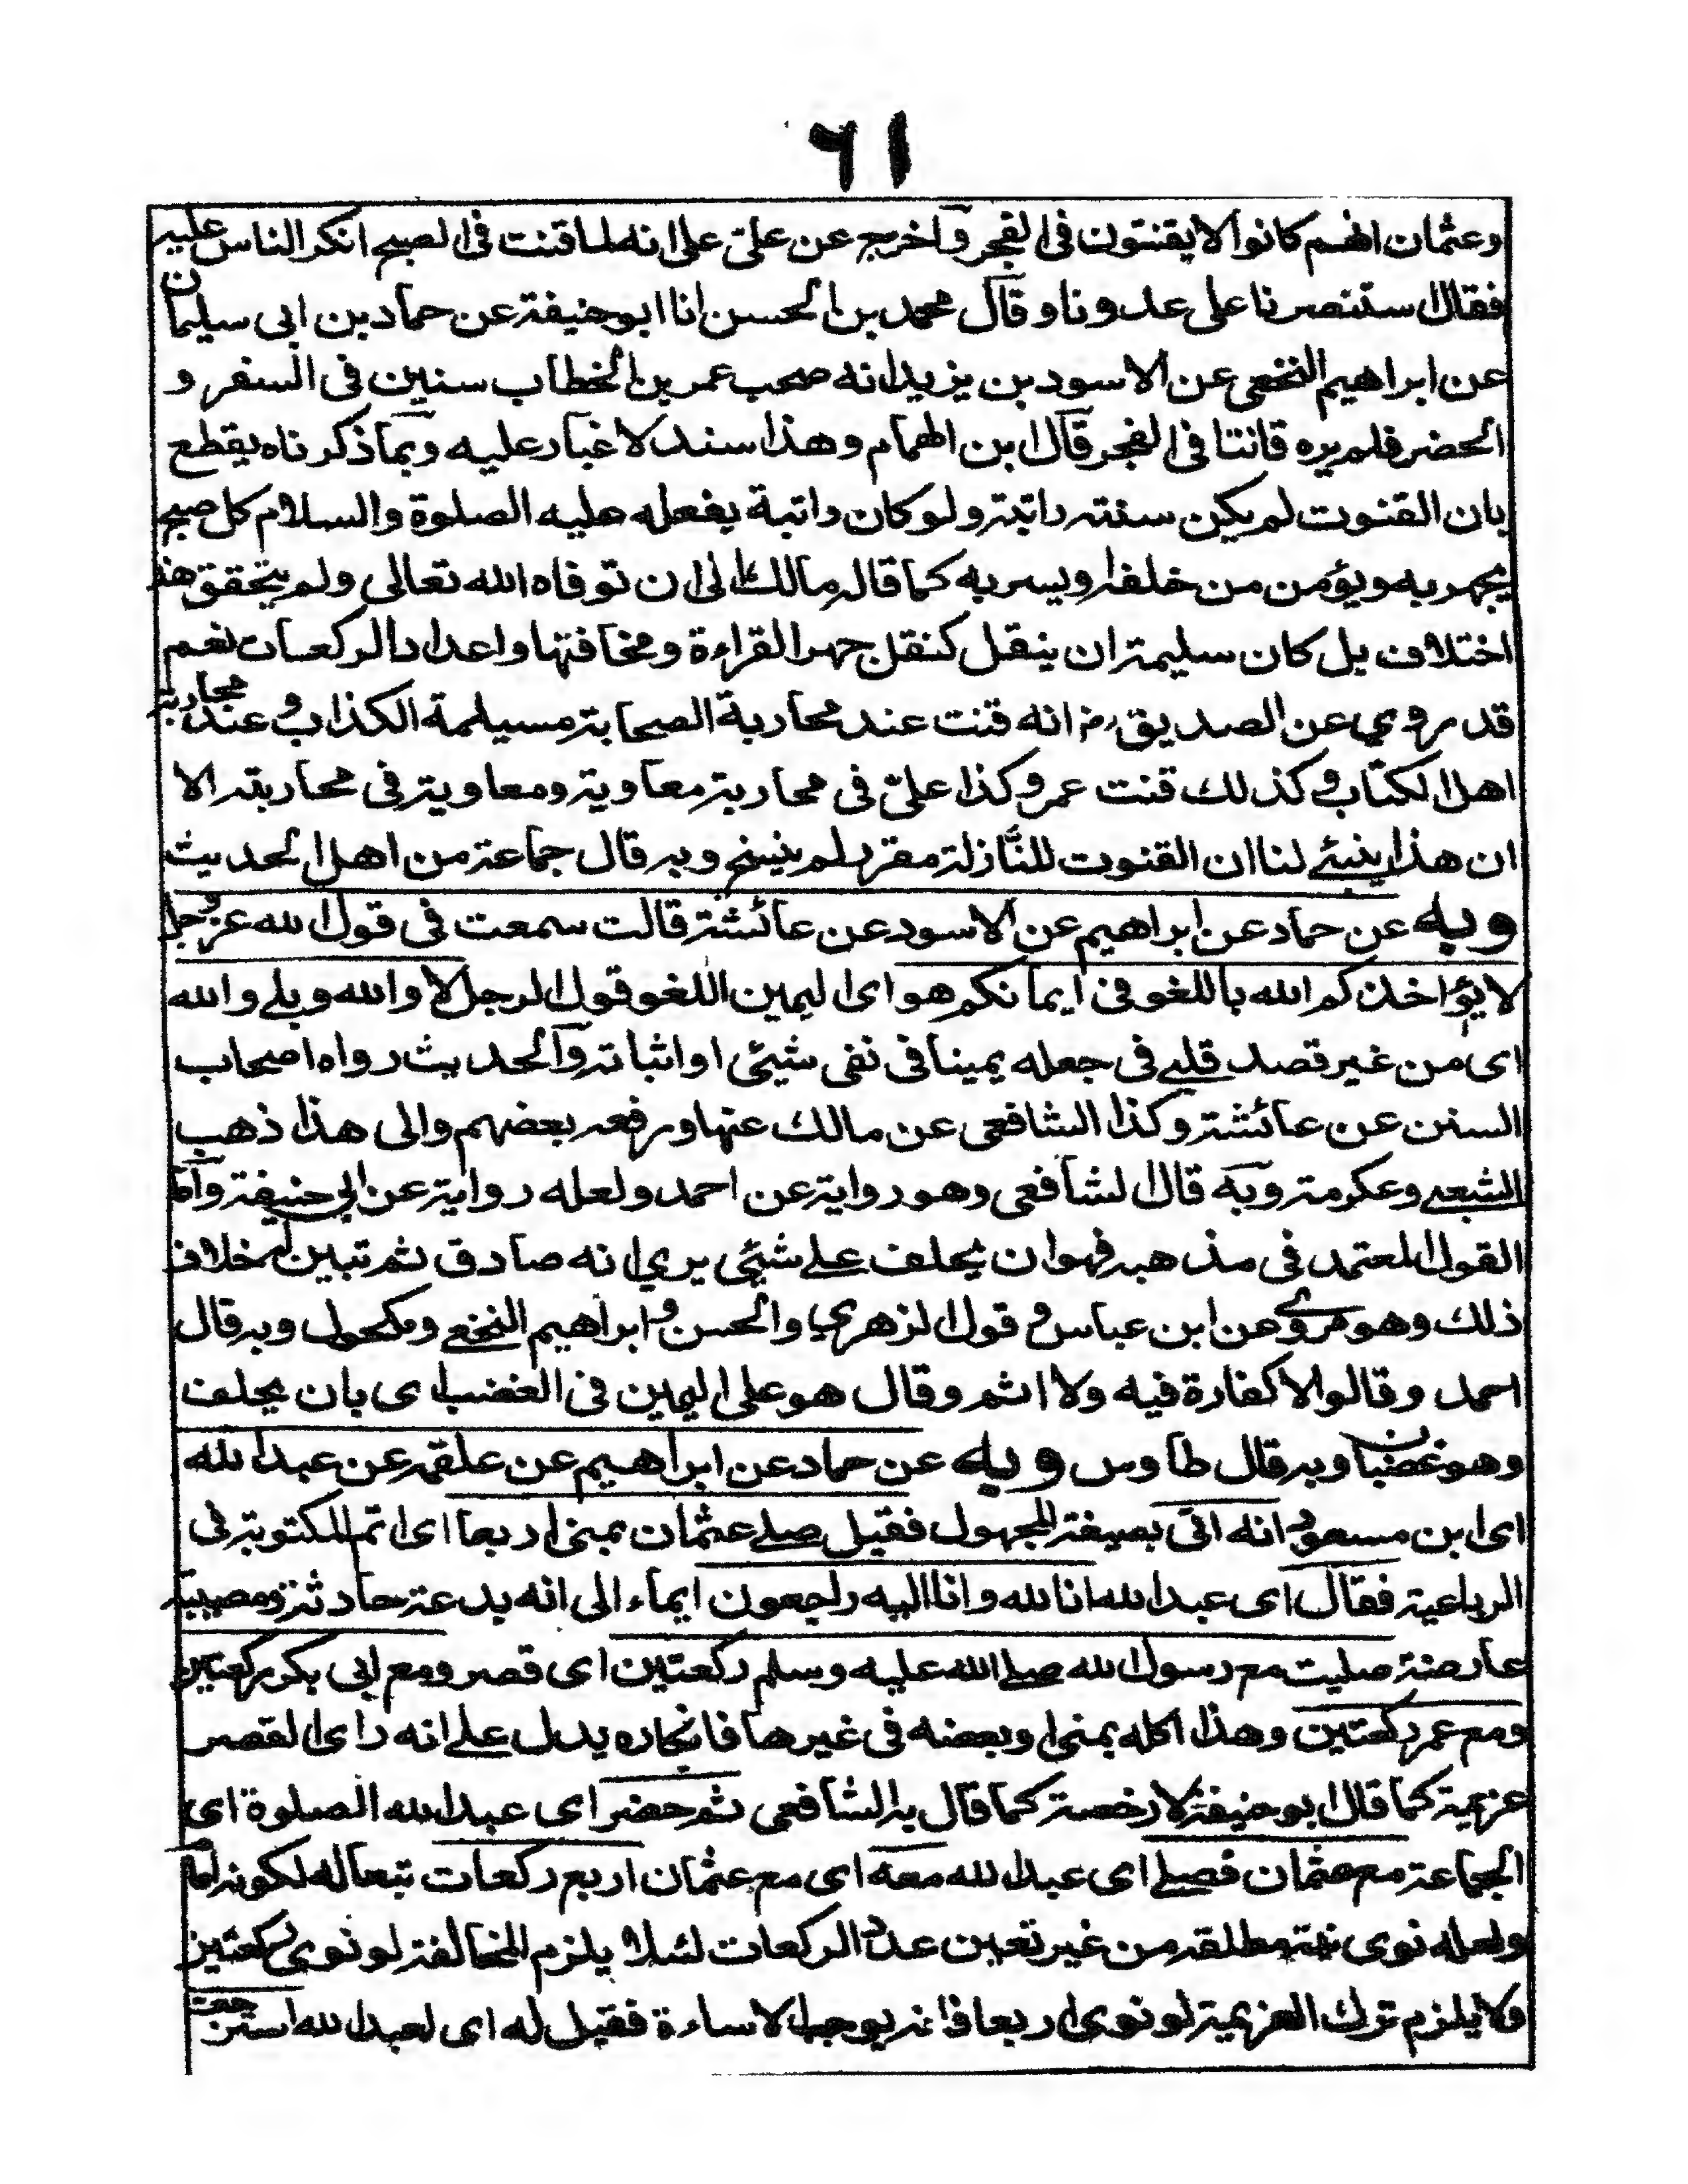 ٦١
وعثمان انهم كانوا لا يقنتون فى الفجر وآخرج عن علىّ على انه لما قنت فى الصبح انكر الناس عليه
فقال استنصرنا على عدونا وقآل محمد بن الحسن انا ابو حنيفة عن حماد بن ابى سليمان
عن ابراهيم النخعى عن الاسود بن يزيد انه صحب عمر بن الخطاب سنين فى السفر و
الحضر فلم يره قانتا فى الفجر قآل ابن الهمام وهذا سند لا غبار عليه وبمآ ذكرناه يقطع
بان القنوت لم يكن سنته راتبة ولو كان راتبة يفعله عليه الصلوة والسلام كل صبح
يجهر به ويؤمن من خلفه او يسر به كما قال مالك الى ان توفاه الله تعالى ولم يتحقق هذا
اختلاف بل كان سليمة ان ينقل كنقل جهر القراءة ومخافتها واعداد الركعات نعم
قد روي عن الصديق رض انه قنت عند محاربة الصحابة مسيلمة الكذاب وعند محاربة
اهل الكتاب وكذلك قنت عمر وكذا علىّ فى محاربة معاوية ومعاوية فى محاربته الا
ان هذا ينبئ لنا ان القنوت للنّازلة مقرر لم ينسخ وبه قال جماعة من اهل الحديث
وبه عن حماد عن ابراهيم عن الاسود عن عائشة قالت سمعت فى قول الله عز وجل
لا يؤاخذكم الله باللغو فى ايمانكم هو اى اليمين اللغو قول الرجل لا والله وبلى والله
اى من غير قصد قلبى فى جعله يمينا فى نفى شيئى او اثباته وآلحديث رواه اصحاب
السنن عن عائشة وكذا الشافعى عن مالك عنها ورفعه بعضهم والى هذا ذهب
الشعبى وعكرمة وبه قال الشافعى وهو رواية عن احمد ولعله رواية عن ابى حنيفة وآما
القول المعتمد فى مذهبه فهو ان يحلف على شيئى يرى انه صادق ثم تبين له خلاف
ذلك وهو مروى عن ابن عباس و قول الزهري والحسن وابراهيم النخعى ومكحول وبه قال
احمد وقالوا لا كفارة فيه ولا اثم وقال هو على اليمين فى الغضب اى بان يحلف
وهو غضبان وبه قال طاوس وبه عن حماد عن ابراهيم عن علقمة عن عبد الله
اى ابن مسعود انه اتى بصيغة المجهول فقيل صلى عثمان بمنى اربعا اى اتم المكتوبة فى
الرباعية فقال اى عبد الله انا لله وانا اليه راجعون ايماء الى انه بدعة حادثة ومصيبة
عارضة صليت مع رسول الله صلى الله عليه وسلم ركعتين اى قصر ومع ابى بكر ركعتين
ومع عمر ركعتين وهذا اكله بمنى وبعضه فى غيرها فانكاره يدل على انه راى القصر
عزيمة كما قال ابو حنيفة لا رخصة كما قال به الشافعى ثم حضر اى عبد الله الصلوة اى
الجماعة مع عثمان فصلى اى عبد الله معه اى مع عثمان اربع ركعات تبعا له لكونه اماما
ولعله نوى نية مطلقه من غير تعين عدد الركعات لئلا يلزم المخالفة لو نوى ركعتين
ولا يلزم ترك العزيمة لو نوى اربعا فانه يوجب الاساءة فقيل له اى لعبد الله استرجعت